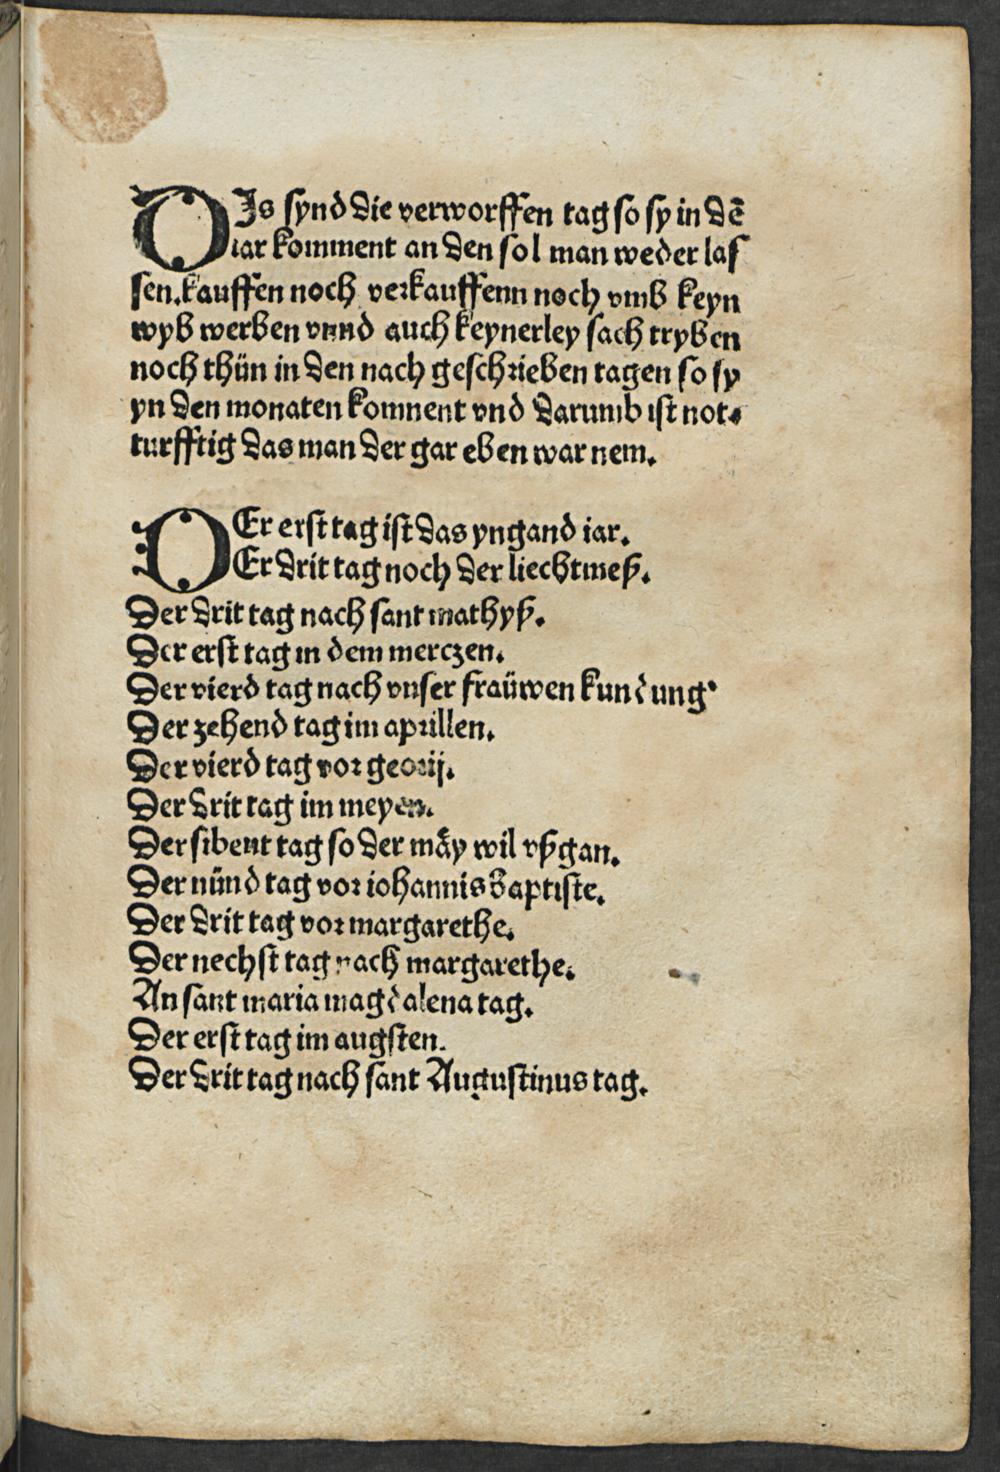 DIs synd die verworffen tag so sy in dē
iar komment an den sol man weder las
sen.kauffen noch verkauffenn noch vmb keyn
wyb werben vnnd auch keynerley sach tryben
noch thün in den nach geschrieben tagen so sy
yn den monaten komnent vnd darumb ist not-
turfftig das man der gar eben war nem.
DEr erst tag ist das yngand iar.
Er drit tag noch der liechtmeß.
Der drit tag nach sant mathyß.
Der erst tag in dem merczen.
Der vierd tag nach vnser fraüwen kundung.
Der zehend tag im aprillen.
Der vierd tag vor georij.
Der drit tag im meyen.
Der sibent tag so der mäy wil vßgan.
Der nünd tag vor iohannis baptiste.
Der drit tag vor margarethe.
Der nechst tag nach margarethe.
An sant maria magdalena tag.
Der erst tag im augsten.
Der drit tag nach sant Augustinus tag.